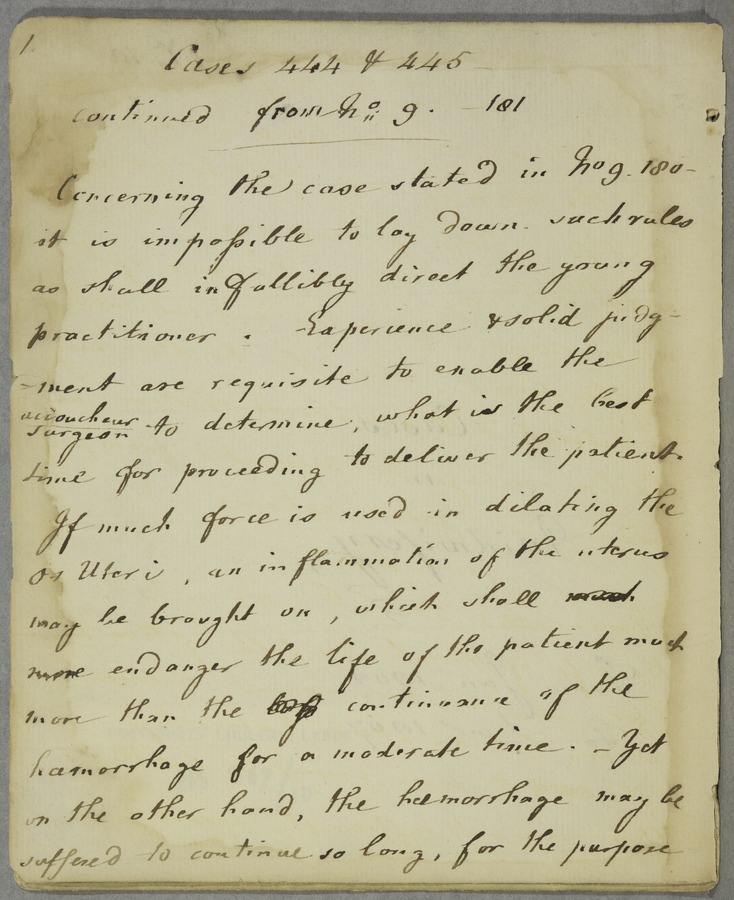 1.
Cases 444 & 445
continued from No 9. - 181
Concerning the case stated in No 9. 180-
it is impossible to lay down such rules
as shall infallibly direct the young
practitioner. Experience & solid judg-
-ment are requisite to enable the
accoucheur
surgeon to determine, what is the best
time for proceeding to deliver the patient.
If much force is used in dilating the
Os Uteri, an inflammation of the uterus
may be brought on, which shall much
more endanger the life of the patient much
more than the continuance of the
hæmorrhage for a moderate time. - Yet
on the other hand, the hæmorrhage may be
suffered to continue so long, for the purpose